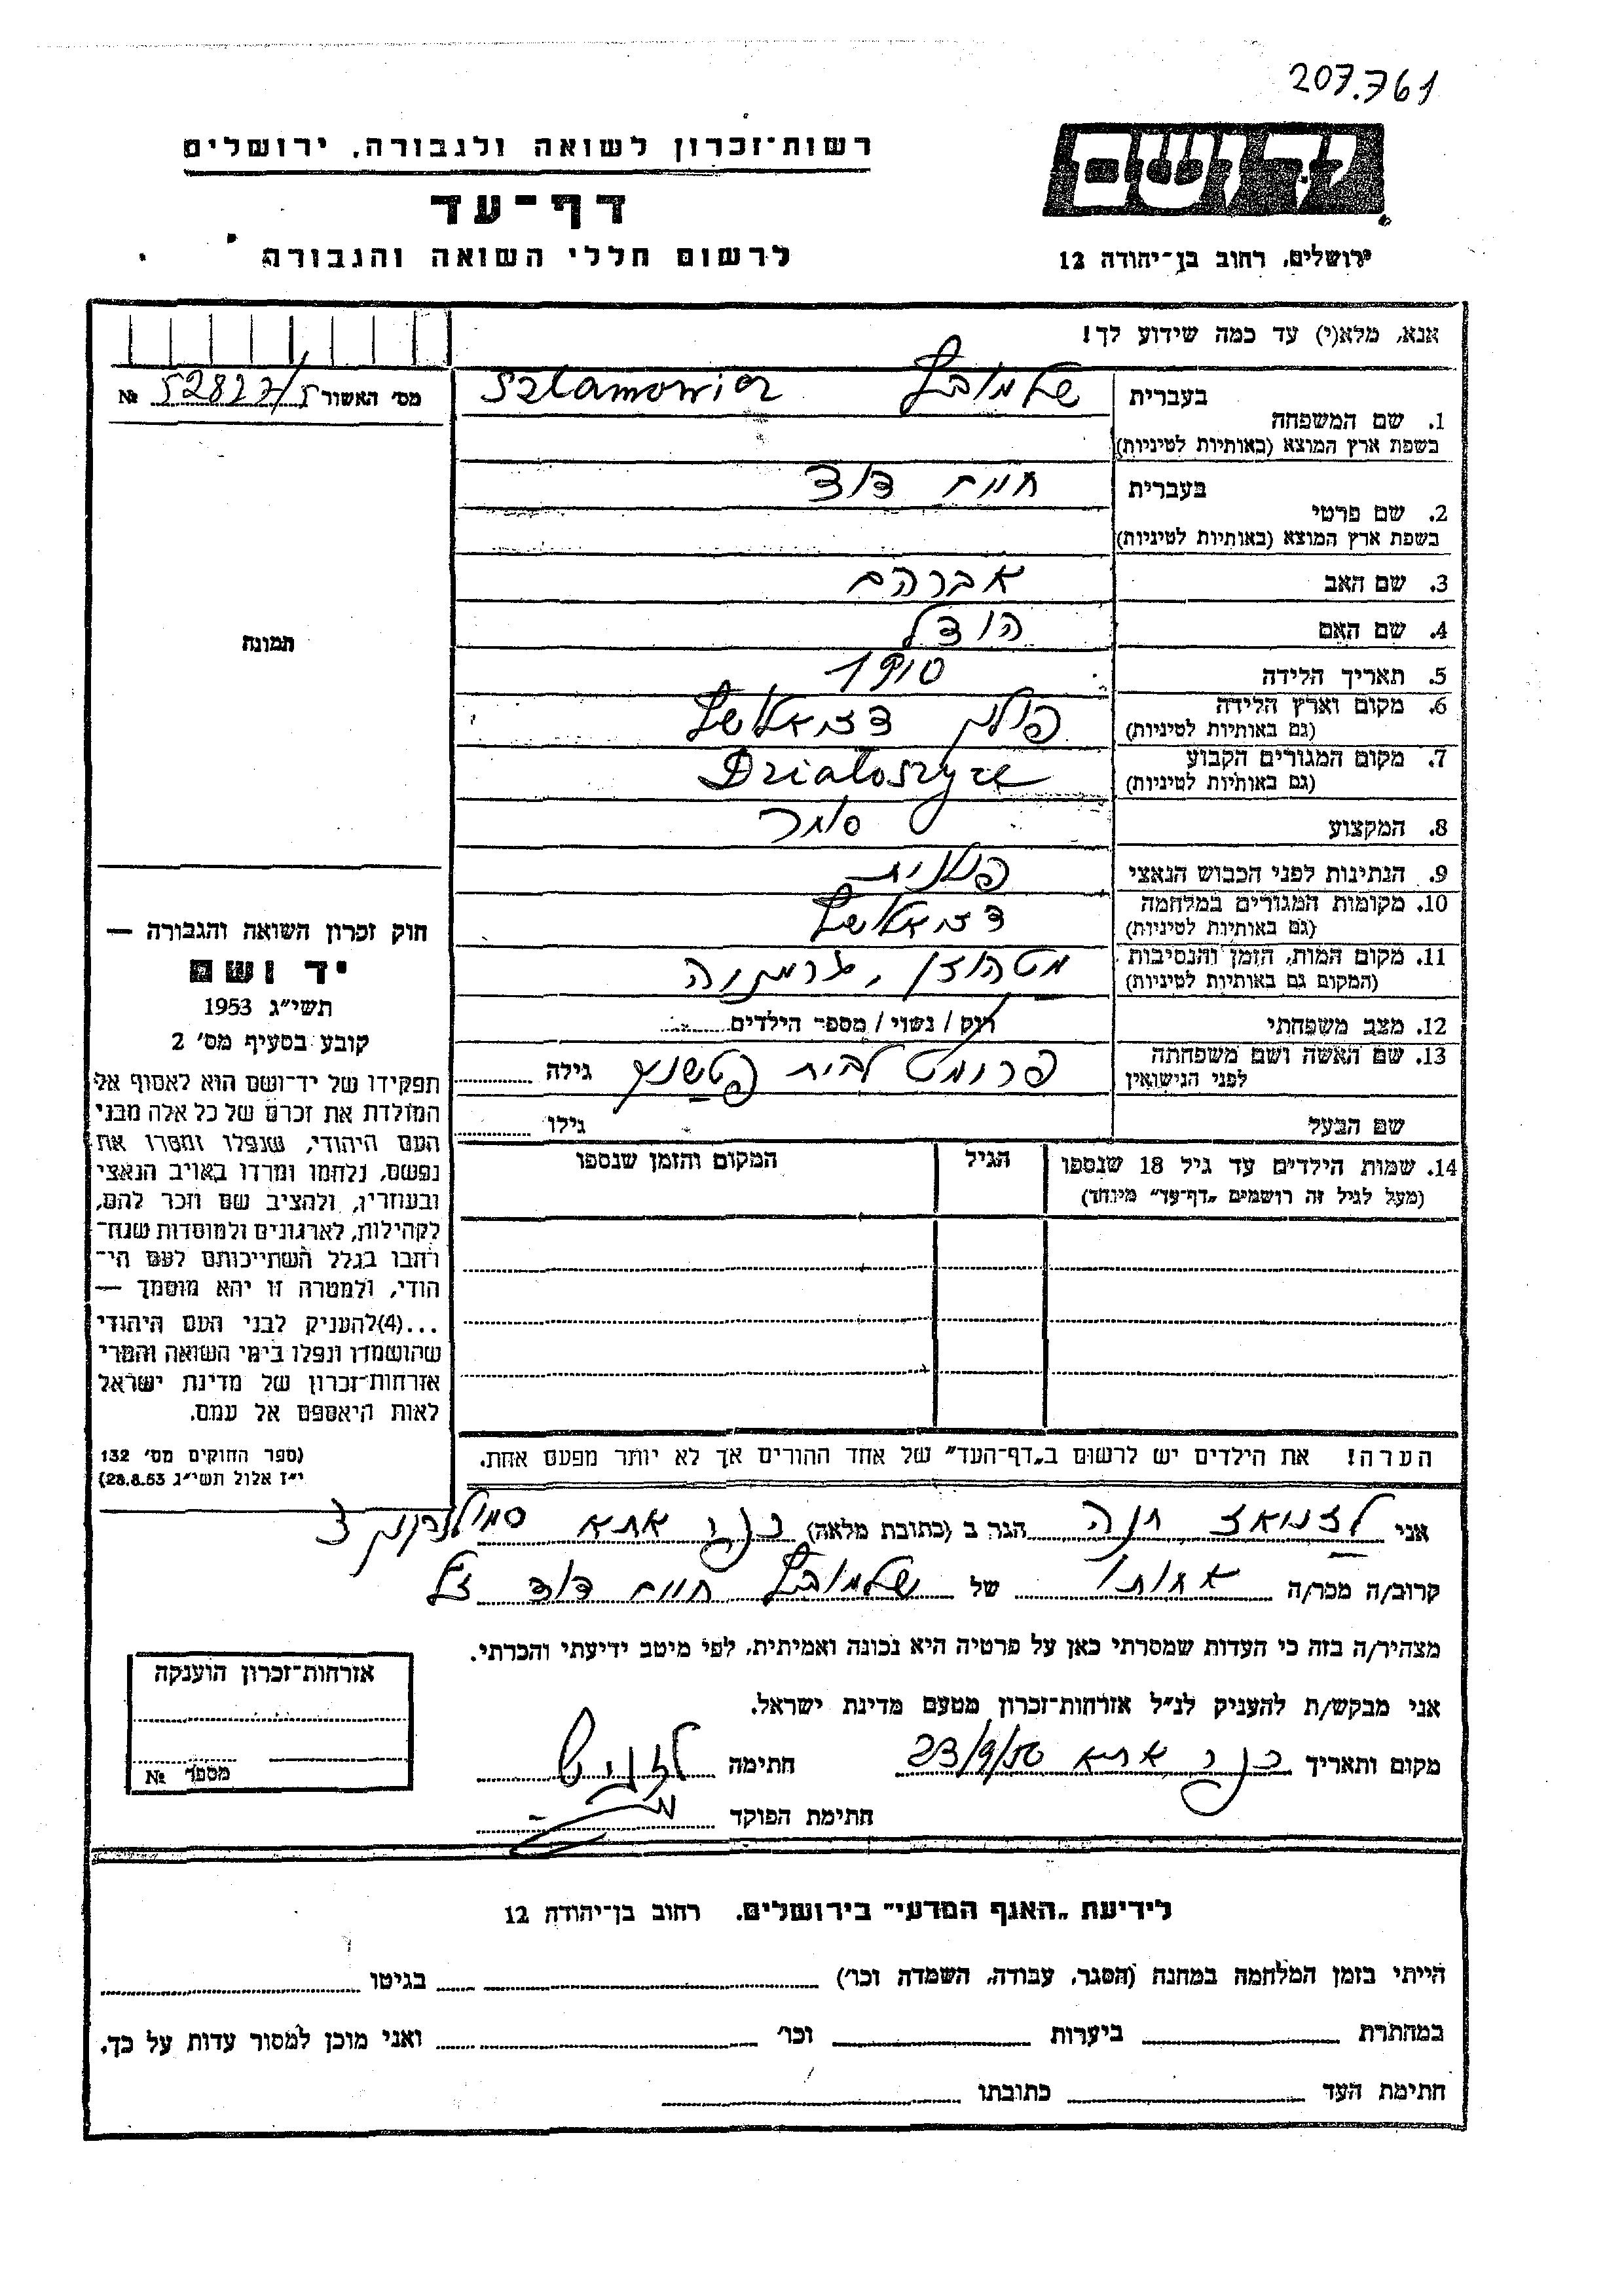 207.761
רשות-זכרון לשואה ולגבורה, ירושלים
יד ושם
דף-עד
לרשום חללי השואה והגבורה
ירושלים, רחוב בן-יהודה 12
אנא, מלא(י) עד כמה שידוע לך!
מס' האשור 52827/5 №
1. שם המשפחה בעברית שלמוביץ Szlamowicz
בשפת ארץ המוצא (באותיות לטיניות)
2. שם פרטי בעברית חיים דוד
בשפת ארץ המוצא (באותיות לטיניות)
3. שם האב אברהם
4. שם האם הודל
תמונה
5. תאריך הלידה 1910
6. מקום וארץ הלידה (גם באותיות לטיניות) פולין דזיאלושיץ
7. מקום המגורים הקבוע (גם באותיות לטיניות) Działoszyce
8. המקצוע סוחר
9. הנתינות לפני הכבוש הנאצי פולנית
10. מקומות המגורים במלחמה (גם באותיות לטיניות) דזיאלושיץ
11. מקום המות, הזמן והנסיבות (המקום גם באותיות לטיניות) מטהוזן, גרמניה
12. מצב משפחתי רוק / נשוי / מספר הילדים
13. שם האשה ושם משפחתה לפני הנישואין פרומט לבית גילה
שם הבעל גילו
14. שמות הילדים עד גיל 18 שנספו הגיל המקום והזמן שנספו
(מעל לגיל זה רושמים „דף-עד" מיוחד)
חוק זכרון השואה והגבורה —
יד ושם
תשי"ג 1953
קובע בסעיף מס' 2
תפקידו של יד-ושם הוא לאסוף אל
המולדת את זכרם של כל אלה מבני
העם היהודי, שנפלו ומסרו את
נפשם, נלחמו ומרדו באויב הנאצי
ובעוזריו, ולהציב שם וזכר להם,
לקהילות, לארגונים ולמוסדות שנח-
רבו בגלל השתייכותם לעם הי-
הודי, ולמטרה זו יהא מוסמך —
...(4)להעניק לבני העם היהודי
שהושמדו ונפלו בימי השואה והמרי
אזרחות-זכרון של מדינת ישראל
לאות היאספם אל עמם.
(ספר החוקים מס' 132
י"ז אלול תשי"ג 28.8.53)
הערה! את הילדים יש לרשום ב„דף-העד" של אחד ההורים אך לא יותר מפעם אחת.
אני חנה הגר ב (כתובת מלאה) אתא
קרוב/ה מכר/ה אחותו של שלמוביץ חיים דוד ז"ל
מצהיר/ה בזה כי העדות שמסרתי כאן על פרטיה היא נכונה ואמיתית, לפי מיטב ידיעתי והכרתי.
אני מבקש/ת להעניק לנ"ל אזרחות-זכרון מטעם מדינת ישראל.
מקום ותאריך אתא חתימה
חתימת הפוקד
אזרחות-זכרון הוענקה
מספר №
לידיעת „האגף המדעי" בירושלים, רחוב בן-יהודה 12
הייתי בזמן המלחמה במחנה (הסגר, עבודה, השמדה וכו') בגיטו
במחתרת ביערות וכו' ואני מוכן למסור עדות על כך.
חתימת העד כתובתו